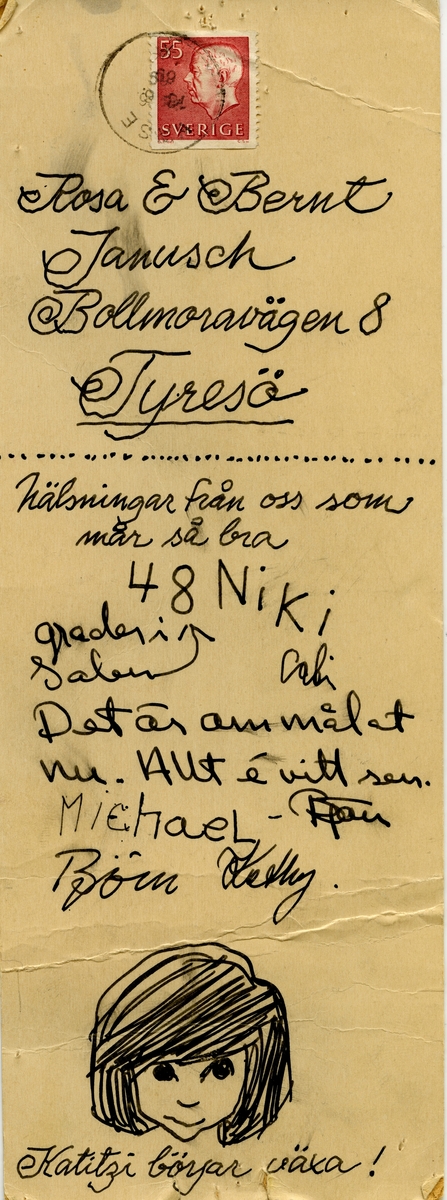 55
SVERIGE
Rosa & Bernt
Janusch
Bollmoravägen 8
Tyresö
Hälsningar från oss som
mår så bra
48 Niki
grader i
Salen
Det är ommålat
nu. Allt é vitt sen.
Michael -
Björn Kathy.
Katitzi börjar växa!